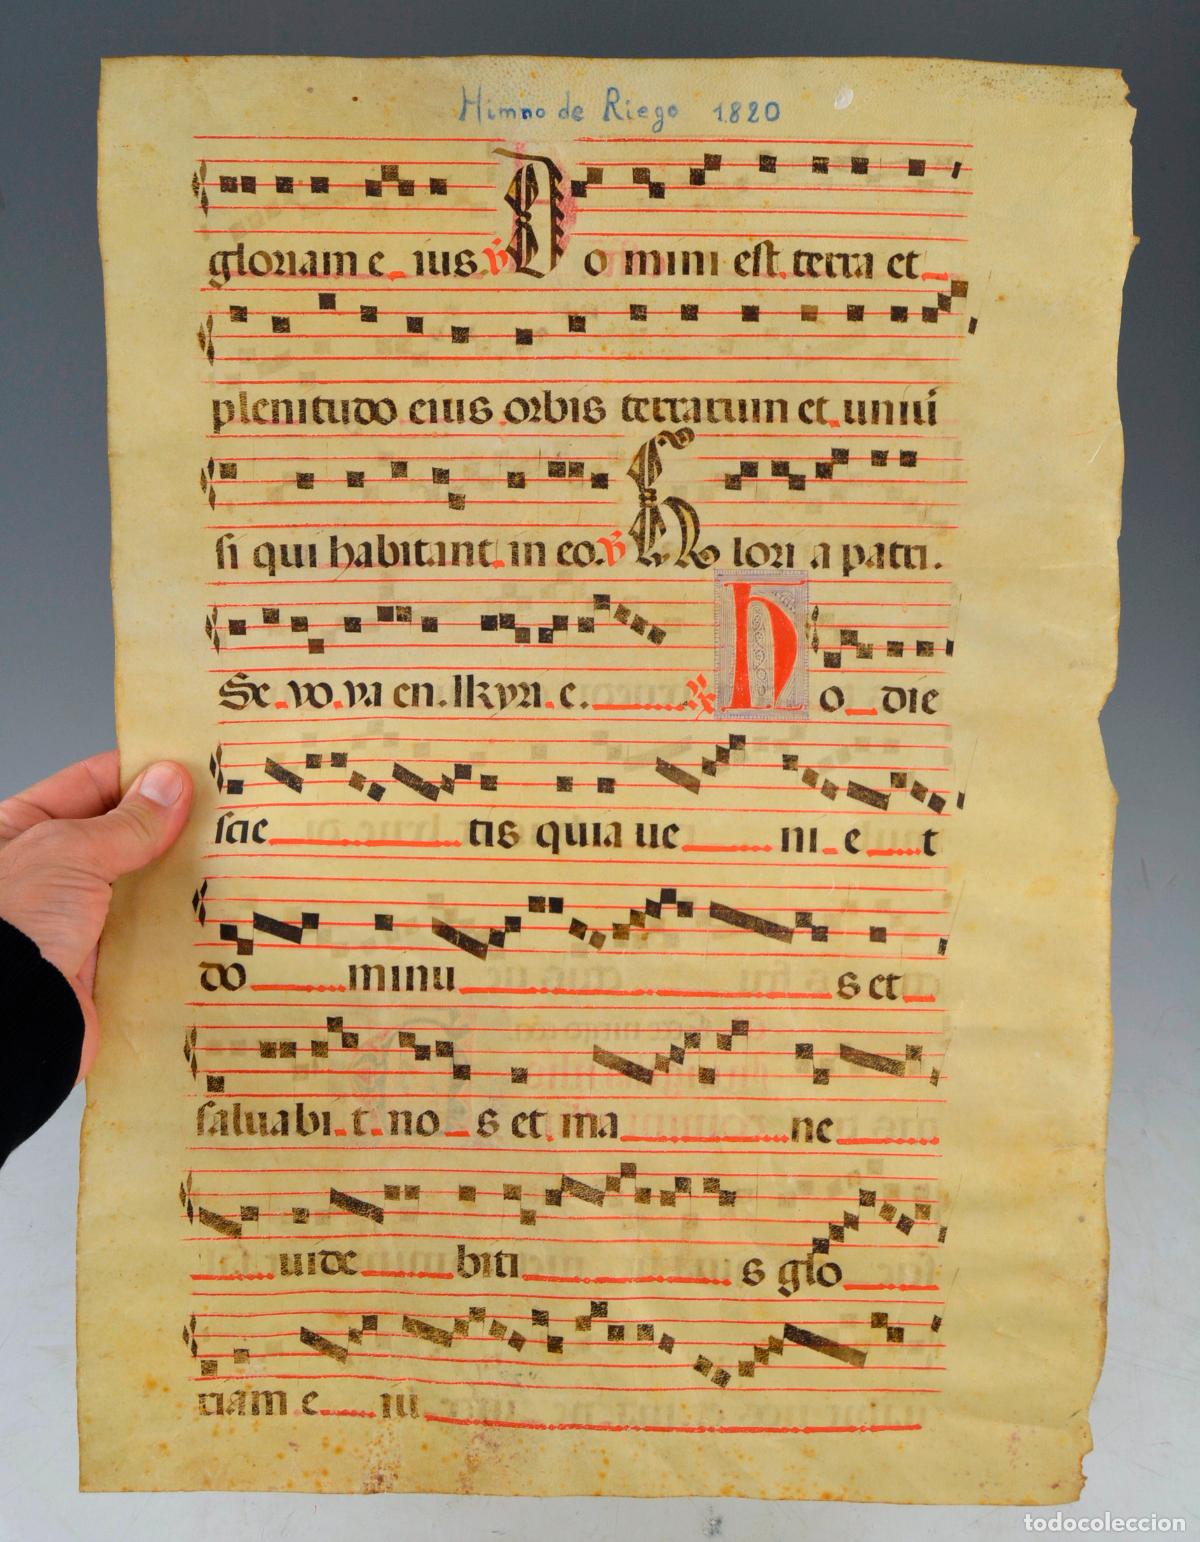 Himno de Riego 1820
gloriam e_ius. ℣ D o mini est terra et_
plenitudo eius orbis terrarum et uniui
si qui habitant in eo. ℣ G lori a patri.
Se_vo_va en. lkyri_e.____ ℟ h o_die
scie____tis quia ue____ni_e__t
do____minu____s et_
saluabi_t_no_s et ma____ne____
____uide____biti____s glo____
riam e____iu____
todocoleccion